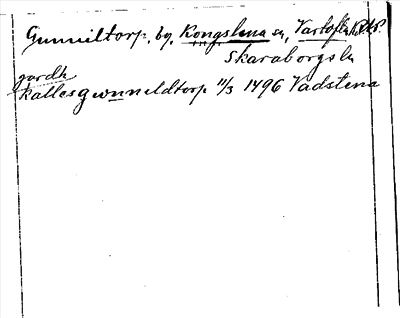 Gunniltorp, by, Kongslena sn, Vartofta hd
Skaraborgs ln
gardh
kalles gwnneldtorp 11/3 1496 Vadstena